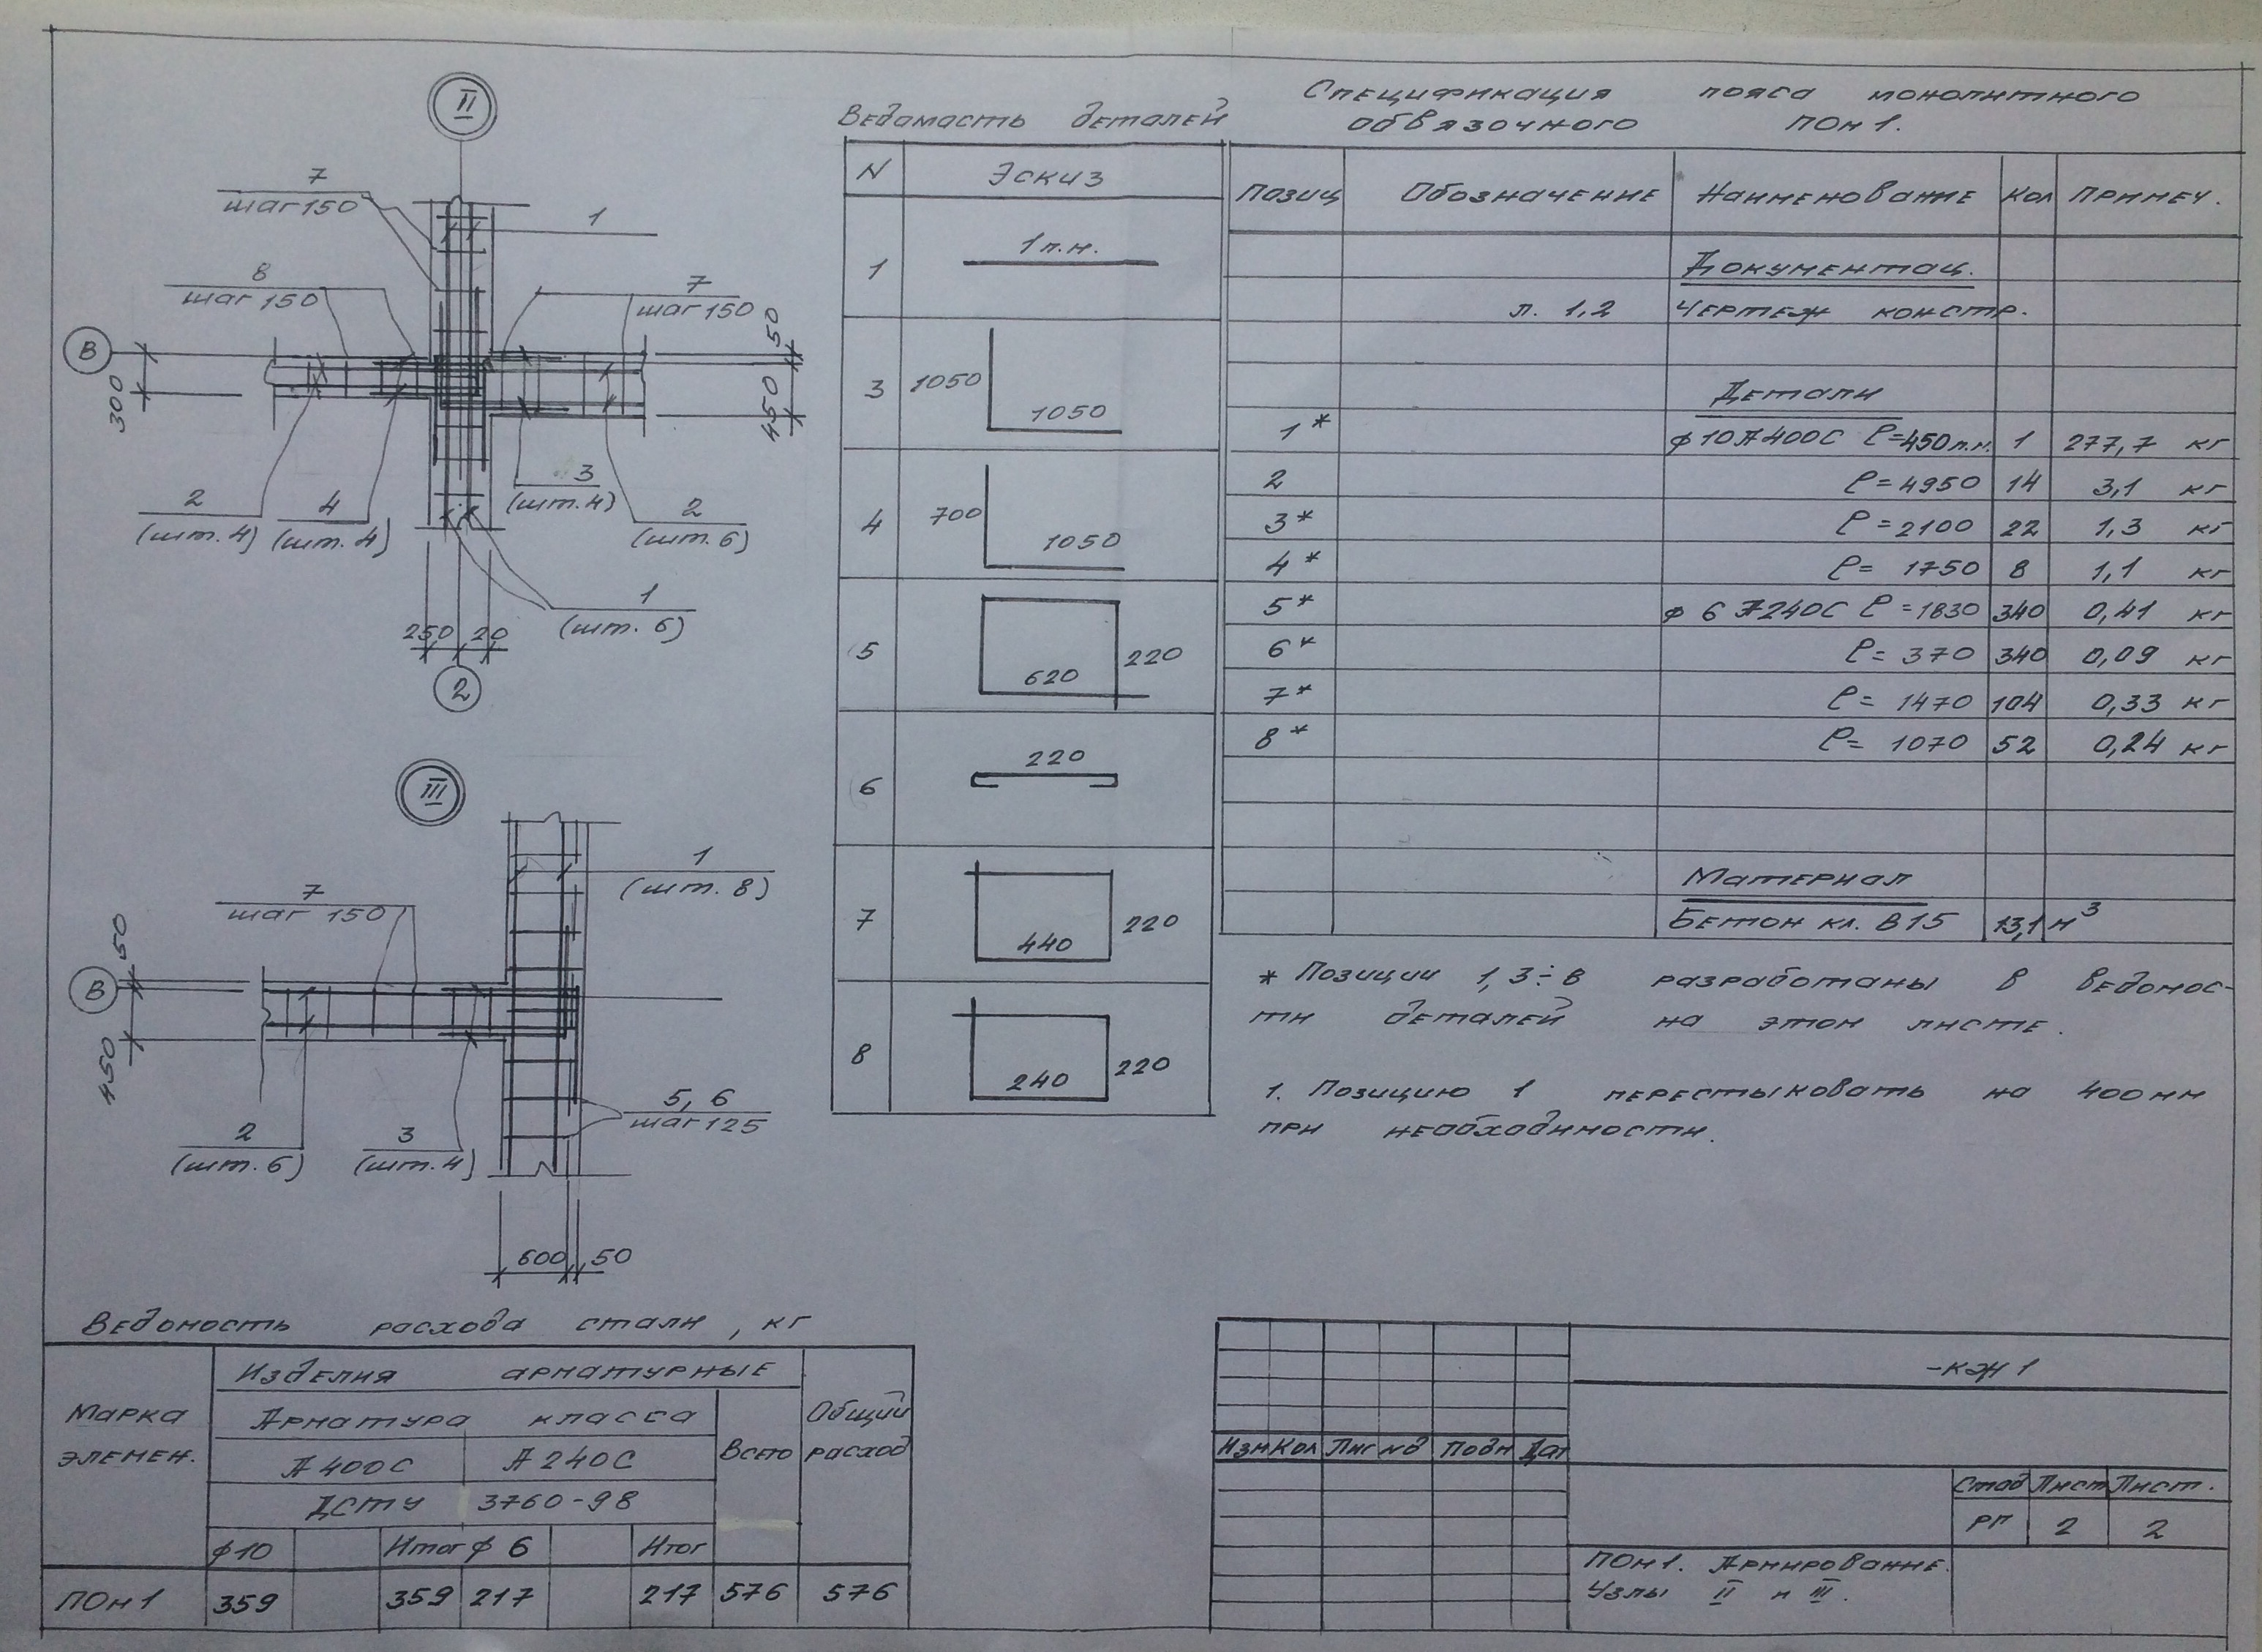 II
7
шаг 150
1
8
шаг 150
7
шаг 150
В
300
50
450
2
(шт. 4)
4
(шт. 4)
3
(шт. 4)
2
(шт. 6)
1
(шт. 6)
250
20
2
III
1
(шт. 8)
7
шаг 150
50
В
450
5, 6
шаг 125
2
(шт. 6)
3
(шт. 4)
600
50
Ведамасть деталей
N Эскиз
1 1 п.м.
3 1050 1050
4 700 1050
5 620 220
6 220
7 440 220
8 240 220
Спецификация пояса монолитного
обвязочного ПОм 1.
Позиц Обозначение Наименование Кол Примеч.
Документац.
л. 1,2 Чертеж констр.
Детали
1* ф 10 А400С ℓ=450 п.м. 1 277,7 кг
2 ℓ=4950 14 3,1 кг
3* ℓ=2100 22 1,3 кг
4* ℓ= 1750 8 1,1 кг
5* ф 6 А240С ℓ=1830 340 0,41 кг
6* ℓ= 370 340 0,09 кг
7* ℓ= 1470 104 0,33 кг
8* ℓ= 1070 52 0,24 кг
Материал
Бетон кл. В15 13,1 м³
* Позиции 1, 3÷8 разработаны в ведомос-
ти деталей на этом листе.
1. Позицию 1 перестыковать на 400 мм
при необходимости.
Ведомость расхода стали, кг
Марка элемен.
Изделия арматурные
Арматура класса
Всего
Общий расход
А 400С А 240С
ДСТУ 3760-98
ф10 Итог ф 6 Итог
ПОм 1 359 359 217 217 576 576
-КЖ 1
Изм Кол Лис Nд Подп Дат
Стад Лист Лист.
РП 2 2
ПОм 1. Армирование.
Узлы II и III.